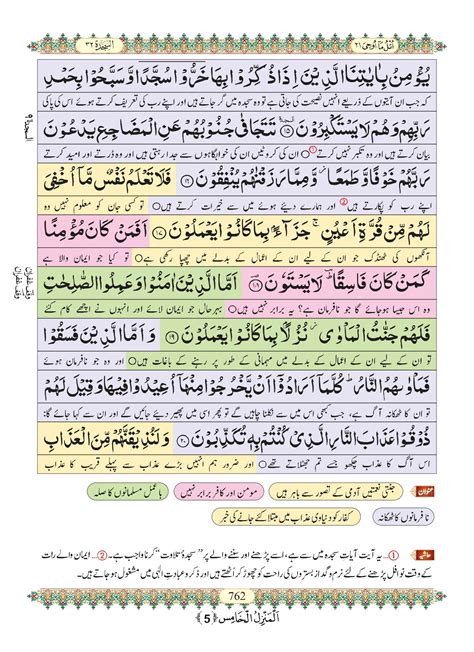 السجدة ٣٢
اتل ما اوحى ٢١
يُؤْمِنُ بِاٰيٰتِنَا الَّذِيْنَ اِذَا ذُكِّرُوْا بِهَا خَرُّوْا سُجَّدًا وَّ سَبَّحُوْا بِحَمْدِ
کہ جب ان آیتوں کے ذریعے انہیں نصیحت کی جاتی ہے تو وہ سجدہ میں گر جاتے ہیں اور اپنے رب کی تعریف کرتے ہوئے اس کی پاکی
رَبِّهِمْ وَ هُمْ لَا يَسْتَكْبِرُوْنَ ۩ ١٥ تَتَجَافٰى جُنُوْبُهُمْ عَنِ الْمَضَاجِعِ يَدْعُوْنَ
بیان کرتے ہیں اور وہ تکبر نہیں کرتے ○ ان کی کروٹیں ان کی خوابگاہوں سے جدا رہتی ہیں اور وہ ڈرتے اور امید کرتے
رَبَّهُمْ خَوْفًا وَّ طَمَعًا ٘ وَّ مِمَّا رَزَقْنٰهُمْ يُنْفِقُوْنَ ١٦ فَلَا تَعْلَمُ نَفْسٌ مَّاۤ اُخْفِيَ
اپنے رب کو پکارتے ہیں اور ہمارے دیئے ہوئے میں سے خیرات کرتے ہیں ○ تو کسی جان کو معلوم نہیں وہ
لَهُمْ مِّنْ قُرَّةِ اَعْيُنٍ ۚ جَزَآءًۢ بِمَا كَانُوْا يَعْمَلُوْنَ ١٧ اَفَمَنْ كَانَ مُؤْمِنًا
آنکھوں کی ٹھنڈک جو ان کے لیے ان کے اعمال کے بدلے میں چھپا رکھی ہے ○ تو کیا جو ایمان والا ہے
كَمَنْ كَانَ فَاسِقًا ؔؕ لَا يَسْتَوٗنَ ١٨ اَمَّا الَّذِيْنَ اٰمَنُوْا وَ عَمِلُوا الصّٰلِحٰتِ
وہ اس جیسا ہو جائے گا جو نافرمان ہے؟ یہ برابر نہیں ہیں ○ بہرحال جو ایمان لائے اور انہوں نے اچھے کام کئے
فَلَهُمْ جَنّٰتُ الْمَاْوٰى ٘ نُزُلًۢا بِمَا كَانُوْا يَعْمَلُوْنَ ١٩ وَ اَمَّا الَّذِيْنَ فَسَقُوْا
تو ان کے لیے ان کے اعمال کے بدلے میں مہمانی کے طور پر رہنے کے باغات ہیں ○ اور وہ جو نافرمان ہوئے
فَمَاْوٰىهُمُ النَّارُ ؕ كُلَّمَاۤ اَرَادُوْۤا اَنْ يَّخْرُجُوْا مِنْهَاۤ اُعِيْدُوْا فِيْهَا وَ قِيْلَ لَهُمْ
تو ان کا ٹھکانہ آگ ہے، جب کبھی اس میں سے نکلنا چاہیں گے تو پھر اسی میں پھیر دیئے جائیں گے اور ان سے کہا جائے گا:
ذُوْقُوْا عَذَابَ النَّارِ الَّذِيْ كُنْتُمْ بِهٖ تُكَذِّبُوْنَ ٢٠ وَ لَنُذِيْقَنَّهُمْ مِّنَ الْعَذَابِ
اس آگ کا عذاب چکھو جسے تم جھٹلاتے تھے ○ اور ضرور ہم انہیں بڑے عذاب سے پہلے قریب کا عذاب
السجدة ٩
وقف غفران
وقف غفران
عنوان
جنتی نعمتیں آدمی کے تصور سے باہر ہیں
مومن اور کافر برابر نہیں
باعمل مسلمانوں کا صلہ
نافرمانوں کا ٹھکانہ
کفار کو دنیاوی عذاب میں مبتلا کئے جانے کی خبر
حاشیہ
①… یہ آیت آیاتِ سجدہ میں سے ہے، اسے پڑھنے اور سننے والے پر "سجدۂ تلاوت" کرنا واجب ہے۔ ②… ایمان والے رات
کے وقت نوافل پڑھنے کے لئے نرم و گداز بستروں کی راحت کو چھوڑ کر اُٹھتے ہیں اور ذکر و عبادتِ الٰہی میں مشغول ہو جاتے ہیں۔
762
اَلْمَنْزِلُ الْخَامِس ﴿5﴾